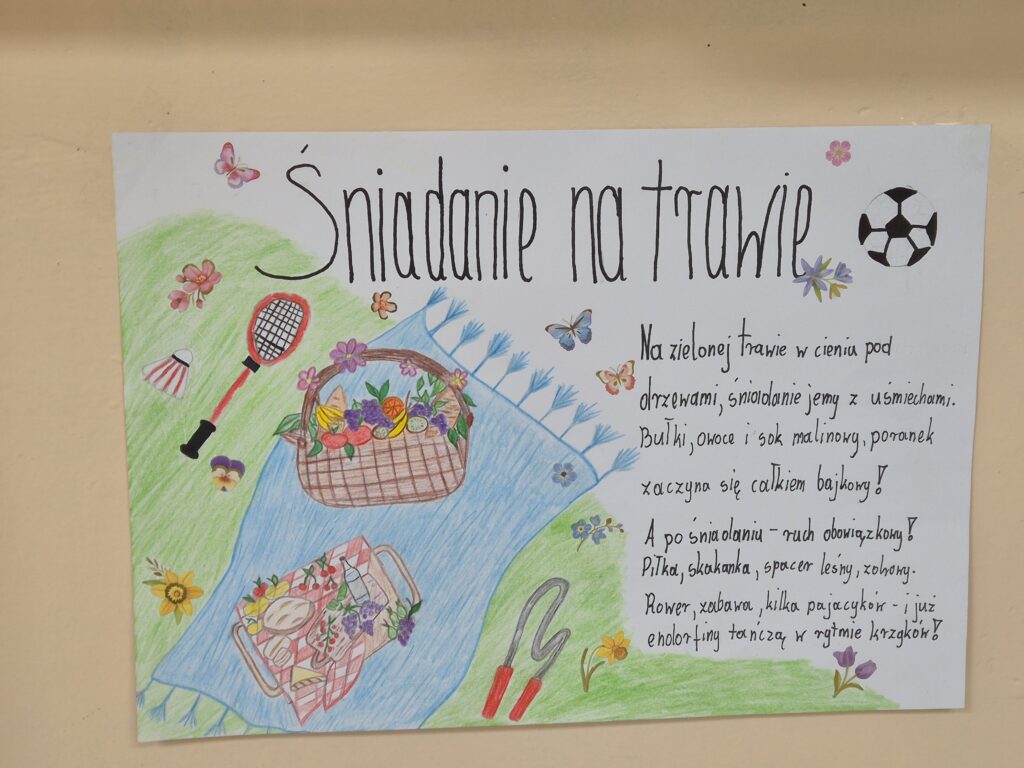 Śniadanie na trawie
Na zielonej trawie w cieniu pod
drzewami, śniadanie jemy z uśmiechami.
Bułki, owoce i sok malinowy, poranek
zaczyna się całkiem bajkowy!
A po śniadaniu - ruch obowiązkowy!
Piłka, skakanka, spacer leśny, zdrowy.
Rower, zabawa, kilka pajacyków - i już
endorfiny tańczą w rytmie krzyków!